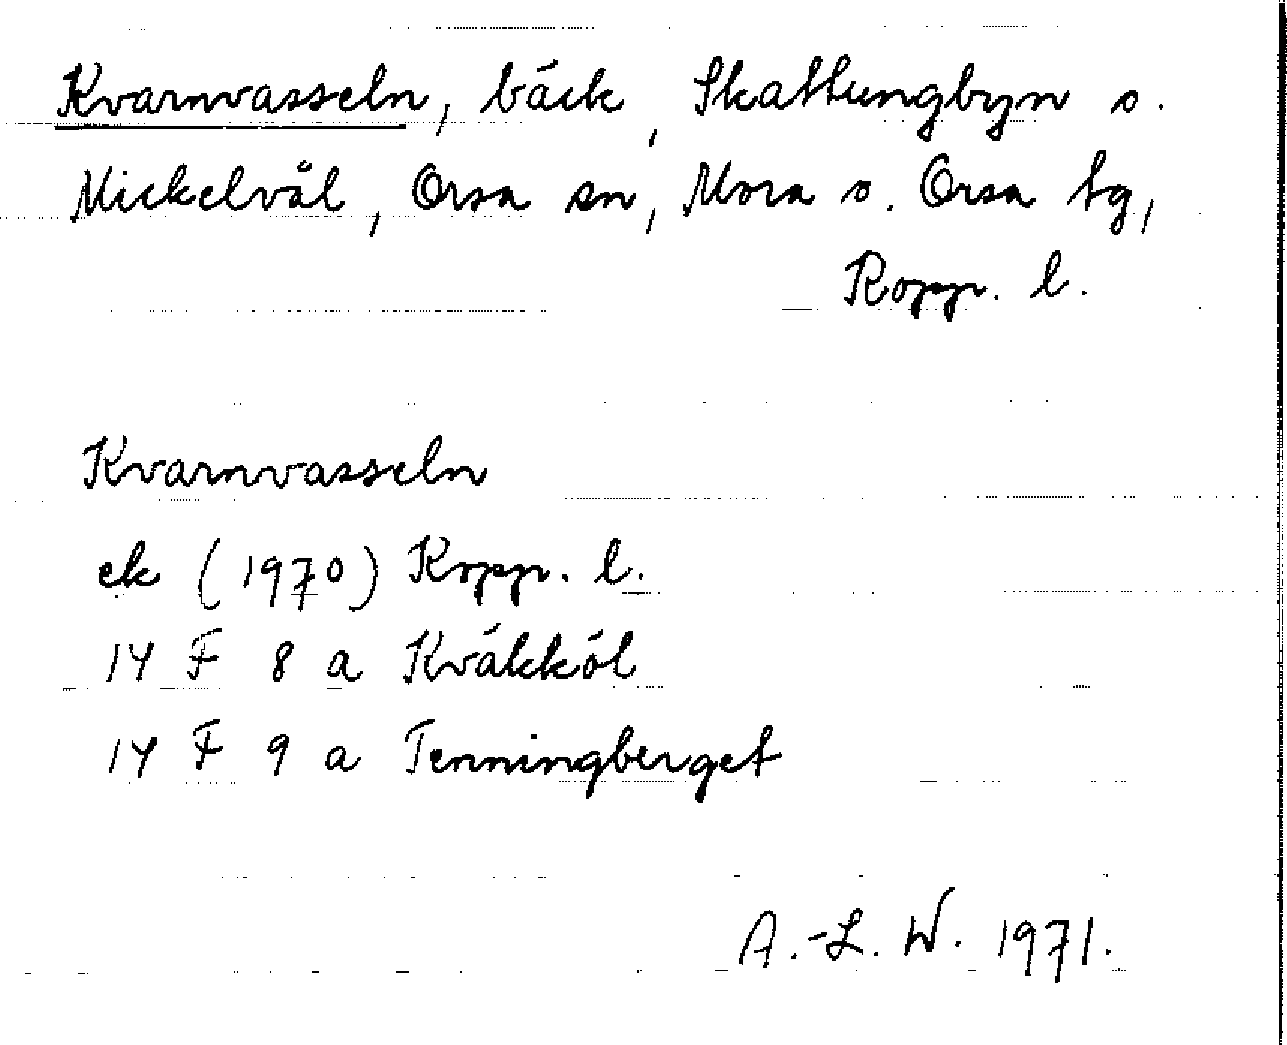 Kvarnvasseln, bäck, Skattungbyn o.
Mickelvål, Orsa sn, Mora o. Orsa tg,
Kopp. l.
Kvarnvasseln
ek (1970) Kopp. l.
14 F 8 a Kväkkôl
14 F 9 a Tenningberget
A.-L. W. 1971.